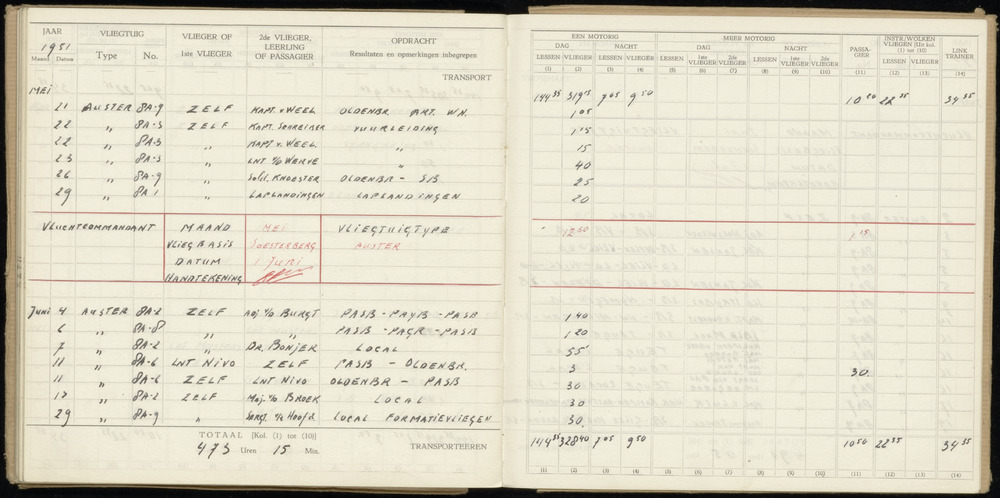 JAAR VLIEGTUIG VLIEGER OF 1ste VLIEGER 2de VLIEGER, LEERLING OF PASSAGIER OPDRACHT Resultaten en opmerkingen inbegrepen
1951
Maand Datum Type No. TRANSPORT
MEI
21 AUSTER 8A-9 ZELF KAPT. v WEEL OLDENBR ART. WN.
22 „ 8A-3 ZELF KAPT. SCHREIBER VUURLEIDING
22 „ 8A-3 „ KAPT v. WEEL „
23 „ 8A-3 „ LNT v/d WERVE „
26 „ 8A-9 „ Sold. KNOESTER OLDENBR - SB
29 „ 8A 1 „ LAPLANDINGEN LAPLANDINGEN
VLUCHTCOMMANDANT MAAND MEI VLIEGTUIGTYPE
VLIEGBASIS SOESTERBERG AUSTER
DATUM 1 JUNI
HANDTEKENING
Juni 4 AUSTER 8A-2 ZELF Adj v/d BURGT PASB - PAYB - PASB
6 „ 8A-8 „ „ PASB - PAGR - PASB
7 „ 8A-2 „ DR. BONJER LOCAL
11 „ 8A-6 LNT NIVO ZELF PASB - OLDENBR.
11 „ 8A-6 ZELF LNT NIVO OLDENBR - PASB
12 „ 8A-2 ZELF Maj. v/d BROEK LOCAL
29 „ 8A-9 „ Sergt. v/d Hoofd. LOCAL FORMATIEVLIEGEN
TOTAAL [Kol. (1) tot (10)] TRANSPORTEEREN
473 Uren 15 Min.
EEN MOTORIG MEER MOTORIG PASSAGIER INSTR./WOLKEN VLIEGEN [Uit kol. (1) tot (10)] LINK TRAINER
DAG NACHT DAG NACHT
LESSEN VLIEGER LESSEN VLIEGER LESSEN 1ste VLIEGER 2de VLIEGER LESSEN 1ste VLIEGER 2de VLIEGER LESSEN VLIEGER
(1) (2) (3) (4) (5) (6) (7) (8) (9) (10) (11) (12) (13) (14)
144 35 319 45 7 05 9 50 10 20 22 35 34 35
1 05
1 15
15
40
25
20
12 50 1 15
1 40
1 20
55
3 30
30
30
30
144 35 328 40 7 05 9 50 10 50 22 35 34 35
(1) (2) (3) (4) (5) (6) (7) (8) (9) (10) (11) (12) (13) (14)